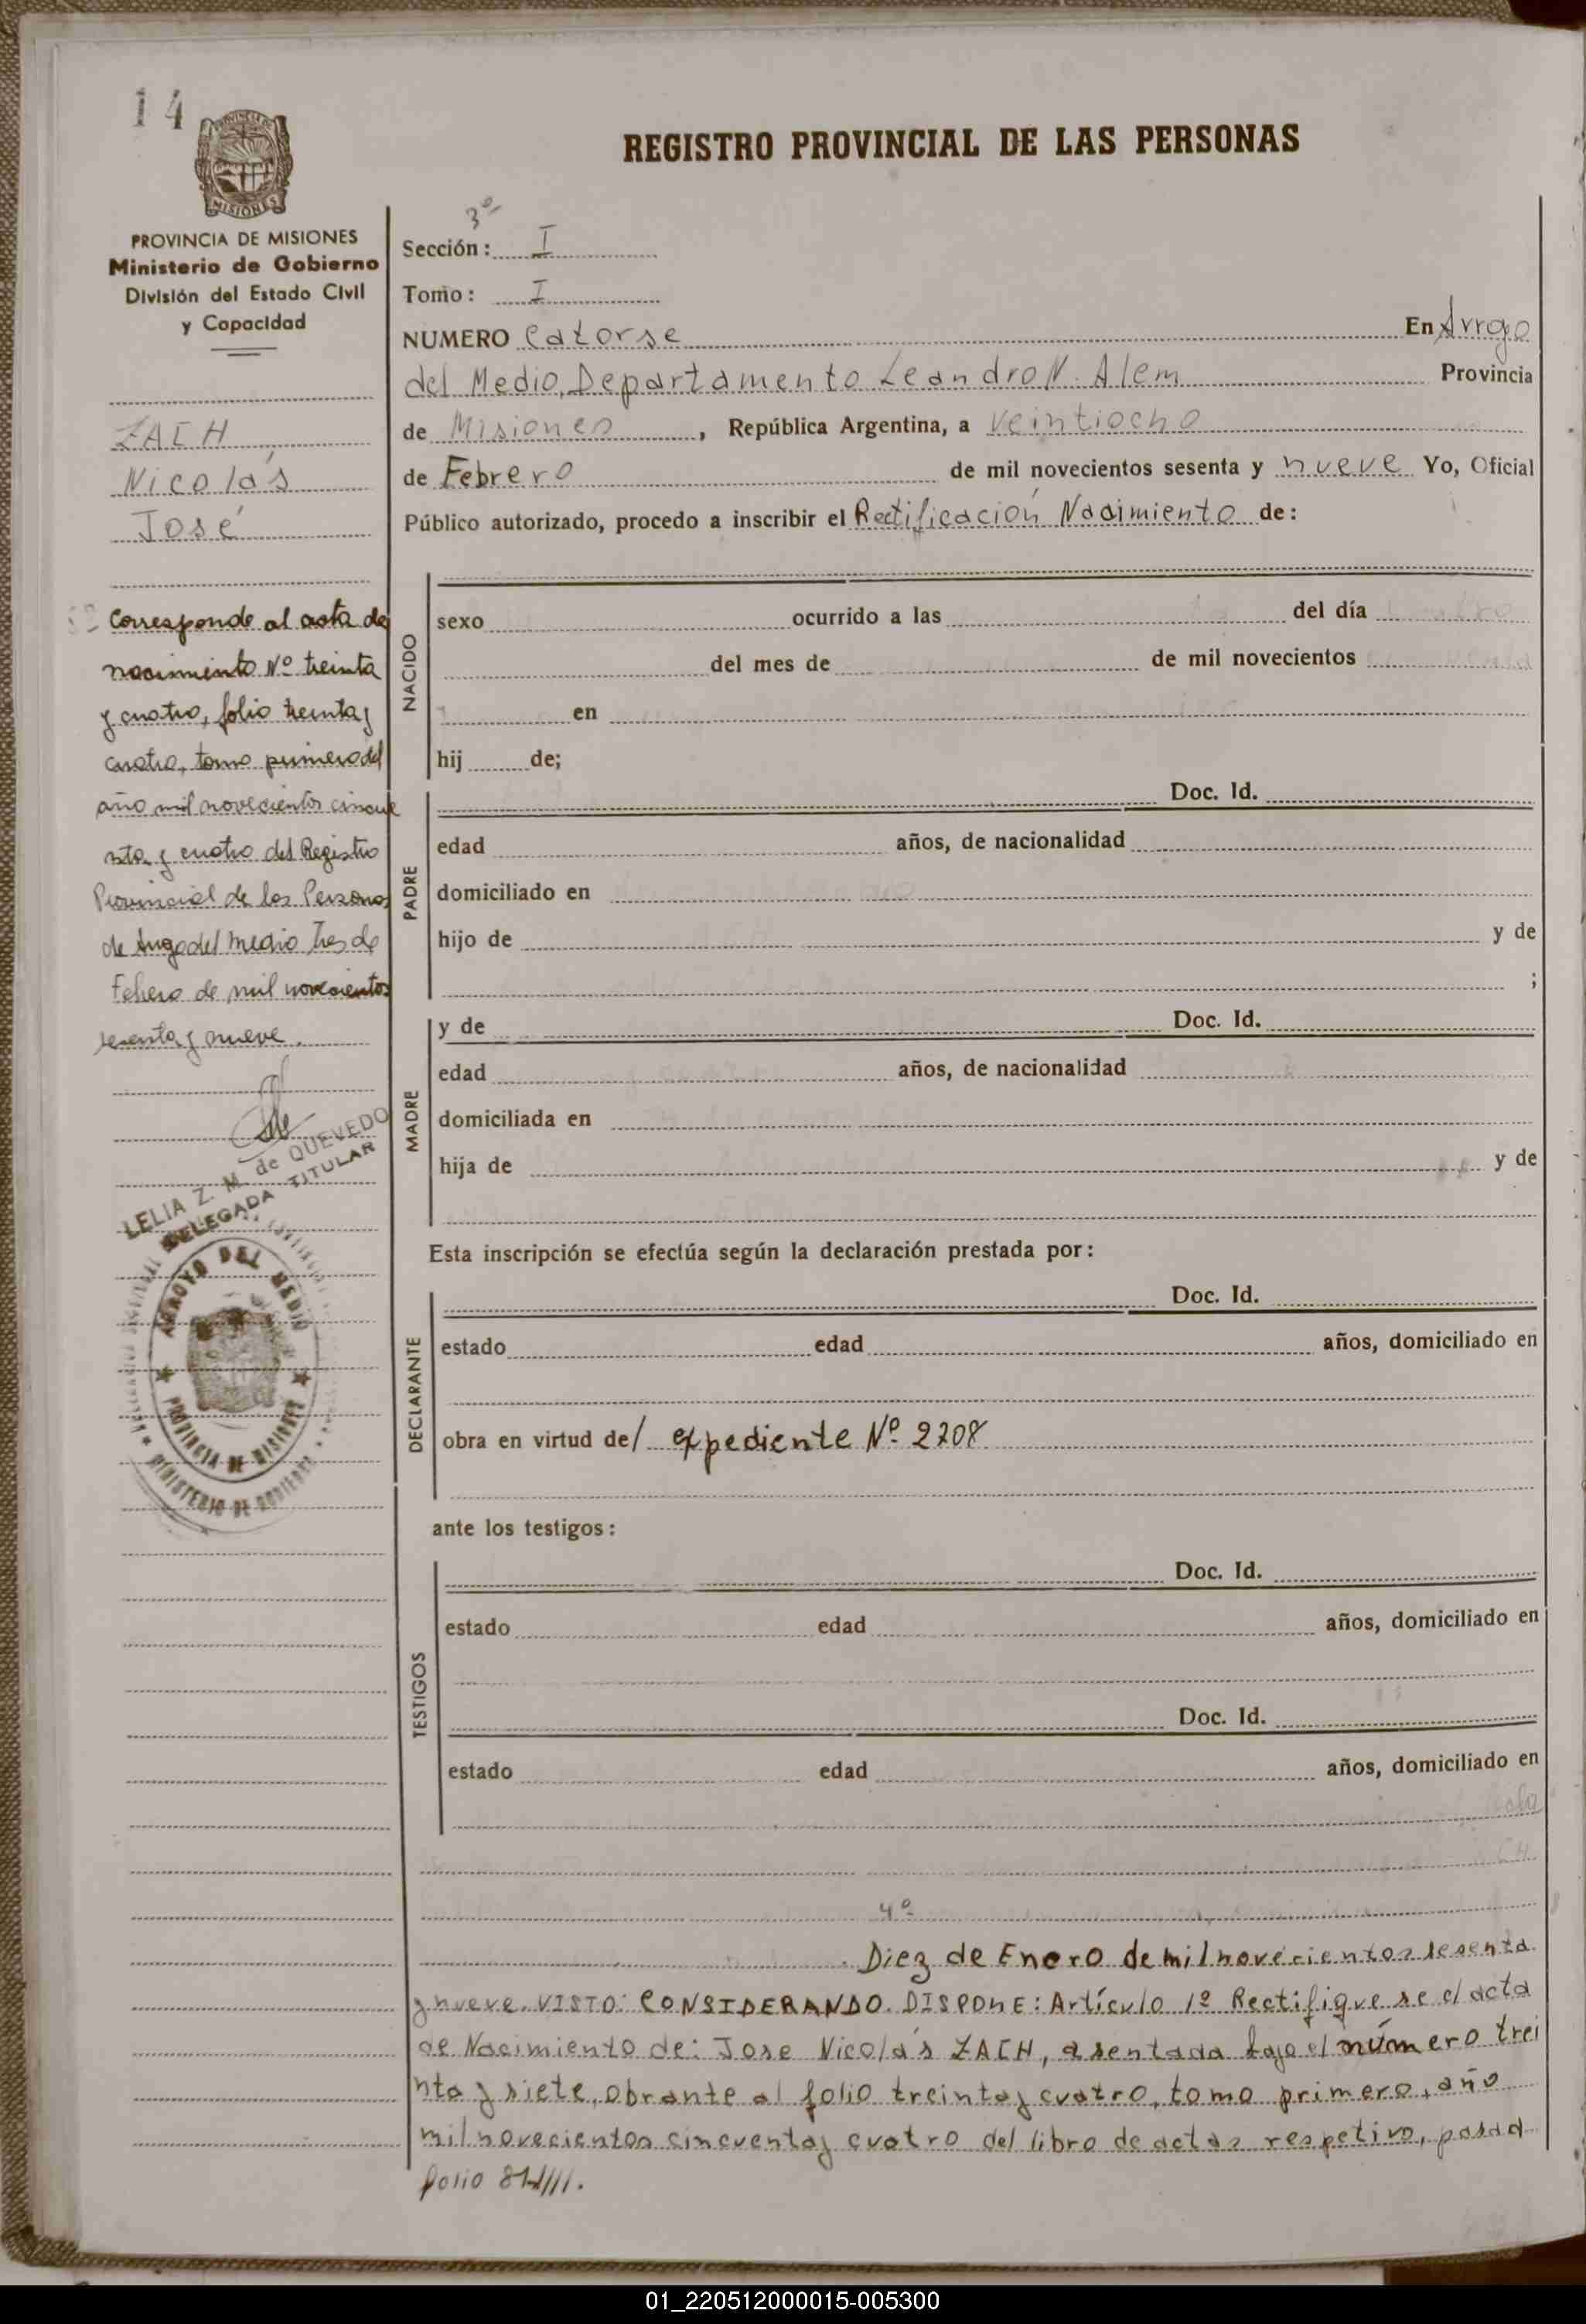 14
PROVINCIA DE MISIONES
Ministerio de Gobierno
División del Estado Civil
y Capacidad
ZACH
Nicolás
José
Corresponde al acta de
nacimiento Nº treinta
y cuatro, folio treinta y
cuatro, tomo primero del
año mil novecientos cincue
nta y cuatro del Registro
Provincial de las Personas
de Arroyo del Medio Tres de
Febrero de mil novecientos
sesenta y nueve.
LELIA Z. M. de QUEVEDO
DELEGADA TITULAR
ARROYO DEL MEDIO
PROVINCIA DE MISIONES
MINISTERIO DE GOBIERNO
REGISTRO PROVINCIAL DE LAS PERSONAS
3º
Sección: I
Tomo: I
NUMERO Catorse En Arroyo
del Medio, Departamento Leandro N. Alem Provincia
de Misiones, República Argentina, a veintiocho
de Febrero de mil novecientos sesenta y nueve Yo, Oficial
Público autorizado, procedo a inscribir el Rectificación Nacimiento de:
NACIDO
sexo ocurrido a las del día
del mes de de mil novecientos
en
hij de;
PADRE
Doc. Id.
edad años, de nacionalidad
domiciliado en
hijo de y de
;
MADRE
y de Doc. Id.
edad años, de nacionalidad
domiciliada en
hija de y de
Esta inscripción se efectúa según la declaración prestada por:
DECLARANTE
Doc. Id.
estado edad años, domiciliado en
obra en virtud de/ expediente Nº 2208
ante los testigos:
TESTIGOS
Doc. Id.
estado edad años, domiciliado en
Doc. Id.
estado edad años, domiciliado en
4º
Diez de Enero de mil novecientos sesenta
y nueve. VISTO: CONSIDERANDO. DISPONE: Artículo 1º Rectifique se el acta
de Nacimiento de: Jose Nicolás ZACH, asentada bajo el número trei
nta y siete, obrante al folio treinta y cuatro, tomo primero, año
mil novecientos cincuenta y cuatro del libro de actas respetivo, pasa al
folio 81///.
01_220512000015-005300